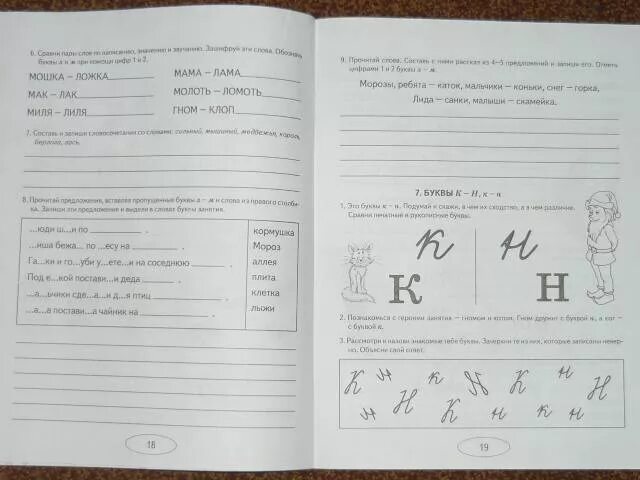 6. Сравни пары слов по написанию, значению и звучанию. Зашифруй эти слова. Обозначь
буквы л и м при помощи цифр 1 и 2.
МОШКА – ЛОЖКА
МАМА – ЛАМА
МАК – ЛАК
МОЛОТЬ – ЛОМОТЬ
МИЛЯ – ЛИЛЯ
ГНОМ – КЛОП
7. Составь и запиши словосочетания со словами: сильный, мышиный, медвежья, король,
берлога, лось.
8. Прочитай предложения, вставляя пропущенные буквы л – м и слова из правого столби-
ка. Запиши эти предложения и выдели в словах буквы занятия.
...юди ш...и по .
...иша бежа... по ...есу на .
Га...ки и го...уби у...ете...и на соседнюю .
Под е...кой постави...и деда .
...а...ьчики сде...а...и д...я птиц .
...а...а постави...а чайник на .
кормушка
Мороз
аллея
плита
клетка
лыжи
18
9. Прочитай слова. Составь с ними рассказ из 4–5 предложений и запиши его. Отметь
цифрами 1 и 2 буквы л – м.
Морозы, ребята – каток, мальчики – коньки, снег – горка,
Лида – санки, малыши – скамейка.
7. БУКВЫ К – Н, к – н
1. Это буквы к – н. Подумай и скажи, в чем их сходство, а в чем различие.
Сравни печатные и рукописные буквы.
К Н
К Н
2. Познакомься с героями занятия – гномом и котом. Гном дружит с буквой н, а кот –
с буквой к.
3. Рассмотри и назови знакомые тебе буквы. Зачеркни те из них, которые записаны невер-
но. Объясни свой ответ.
К и к N К н Н
и Н К н к н
19